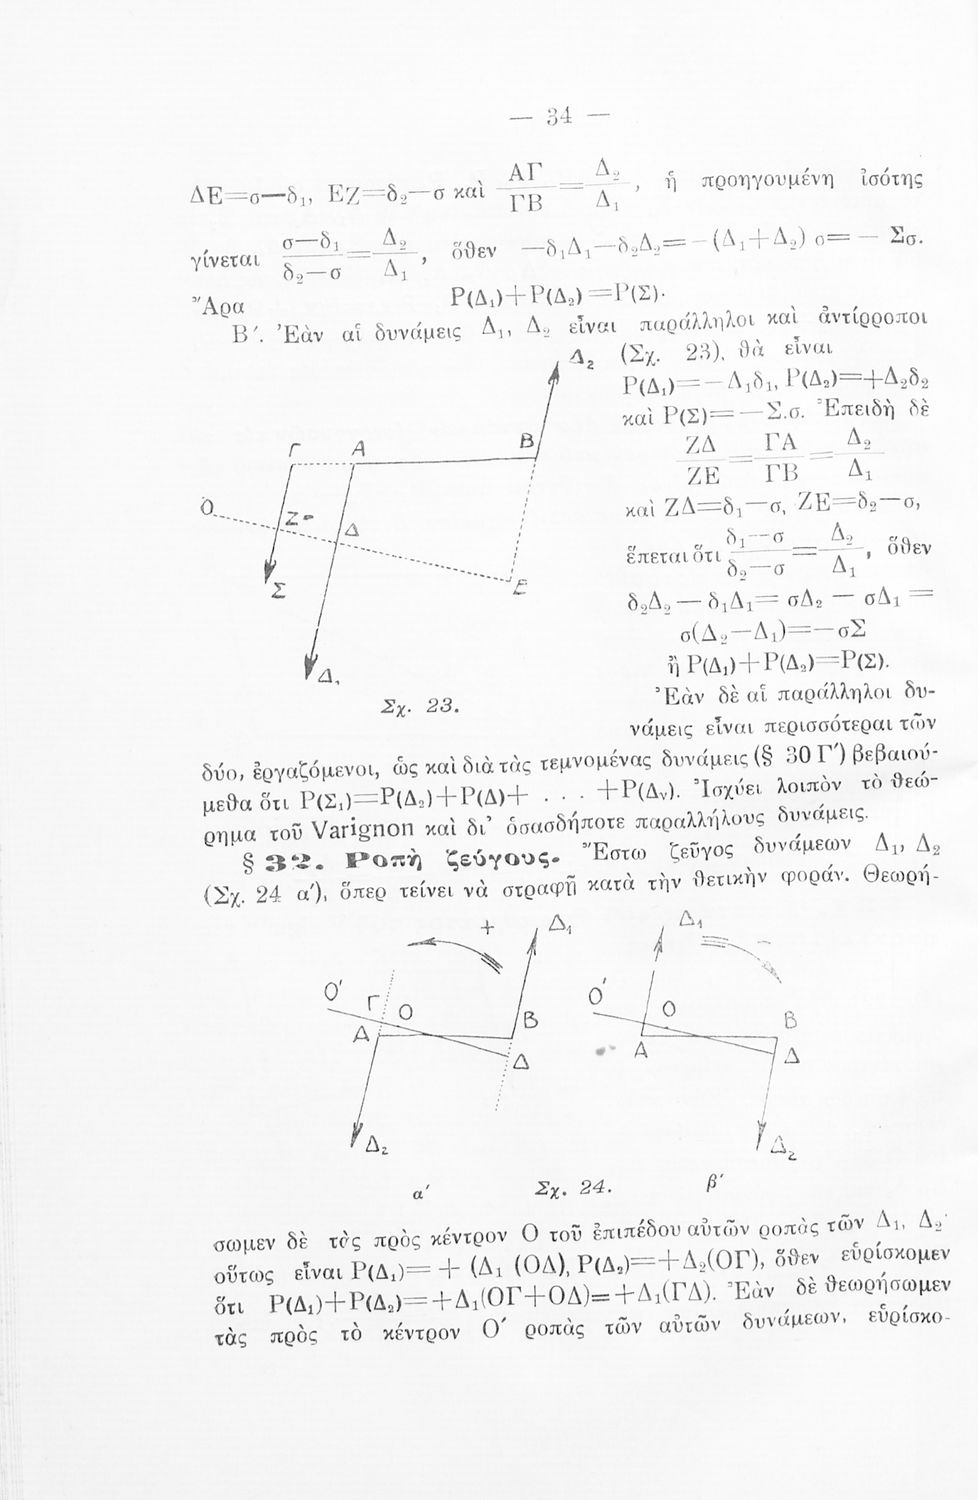 — 34 —
ΔΕ=σ—δ₁, ΕΖ=δ₂—σ καὶ ΑΓ/ΓΒ = Δ₂/Δ₁, ἡ προηγουμένη ἰσότης
γίνεται σ—δ₁/δ₂—σ = Δ₂/Δ₁, ὅθεν —δ₁Δ₁—δ₂Δ₂= —(Δ₁+Δ₂) σ= — Σσ.
Ἄρα Ρ(Δ₁)+Ρ(Δ₂)=Ρ(Σ).
Β΄. Ἐὰν αἱ δυνάμεις Δ₁, Δ₂ εἶναι παράλληλοι καὶ ἀντίρροποι
(Σχ. 23), θὰ εἶναι
Ρ(Δ₁)=—Δ₁δ₁, Ρ(Δ₂)=+Δ₂δ₂
καὶ Ρ(Σ)=—Σ.σ. Ἐπειδὴ δὲ
ΖΔ/ΖΕ = ΓΑ/ΓΒ = Δ₂/Δ₁
καὶ ΖΔ=δ₁—σ, ΖΕ=δ₂—σ,
ἕπεται ὅτι δ₁—σ/δ₂—σ = Δ₂/Δ₁, ὅθεν
δ₂Δ₂ — δ₁Δ₁= σΔ₂ — σΔ₁ =
σ(Δ₂—Δ₁)=—σΣ
ἢ Ρ(Δ₁)+Ρ(Δ₂)=Ρ(Σ).
Ἐὰν δὲ αἱ παράλληλοι δυ-
νάμεις εἶναι περισσότεραι τῶν
Δ₂
Γ Α Β
Ο
Ζ
Δ
Σ
Ε
Δ₁
Σχ. 23.
δύο, ἐργαζόμενοι, ὡς καὶ διὰ τὰς τεμνομένας δυνάμεις (§ 30 Γ΄) βεβαιού-
μεθα ὅτι Ρ(Σ₁)=Ρ(Δ₂)+Ρ(Δ)+ . . . +Ρ(Δᵥ). Ἰσχύει λοιπὸν τὸ θεώ-
ρημα τοῦ Varignon καὶ δι᾽ ὁσασδήποτε παραλλήλους δυνάμεις.
§ 32. Ροπὴ ζεύγους. Ἔστω ζεῦγος δυνάμεων Δ₁, Δ₂
(Σχ. 24 α΄), ὅπερ τείνει νὰ στραφῇ κατὰ τὴν θετικὴν φοράν. Θεωρή-
+ Δ₁
Ο΄ Γ Ο Β
Α Δ
Δ₂
α΄
Δ₁ —
Ο΄ Ο Β
Α Δ
Δ₂
β΄
Σχ. 24.
σωμεν δὲ τὰς πρὸς κέντρον Ο τοῦ ἐπιπέδου αὐτῶν ροπὰς τῶν Δ₁, Δ₂·
οὕτως εἶναι Ρ(Δ₁)= + (Δ₁ (ΟΔ), Ρ(Δ₂)=+Δ₂(ΟΓ), ὅθεν εὑρίσκομεν
ὅτι Ρ(Δ₁)+Ρ(Δ₂)=+Δ₁(ΟΓ+ΟΔ)=+Δ₁(ΓΔ). Ἐὰν δὲ θεωρήσωμεν
τὰς πρὸς τὸ κέντρον Ο΄ ροπὰς τῶν αὐτῶν δυνάμεων, εὑρίσκο-